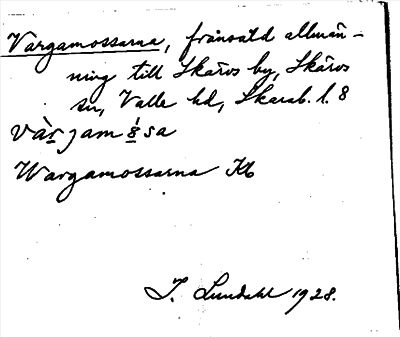 Vargamossarna, frånsåld allmän-
ning till Skärvs by, Skärvs
sn, Valle hd, Skarab. l. 8
Wargamossarna Kb
I. Lundahl 1928.